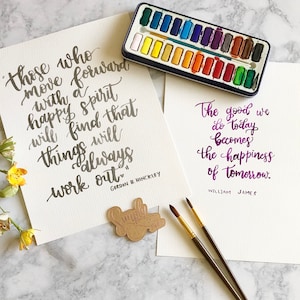 those who
move forward
with a
happy spirit
will find that
things will
always
work out
GORDON B. HINCKLEY
The good we
do today
becomes
the happiness
of tomorrow.
WILLIAM JAMES